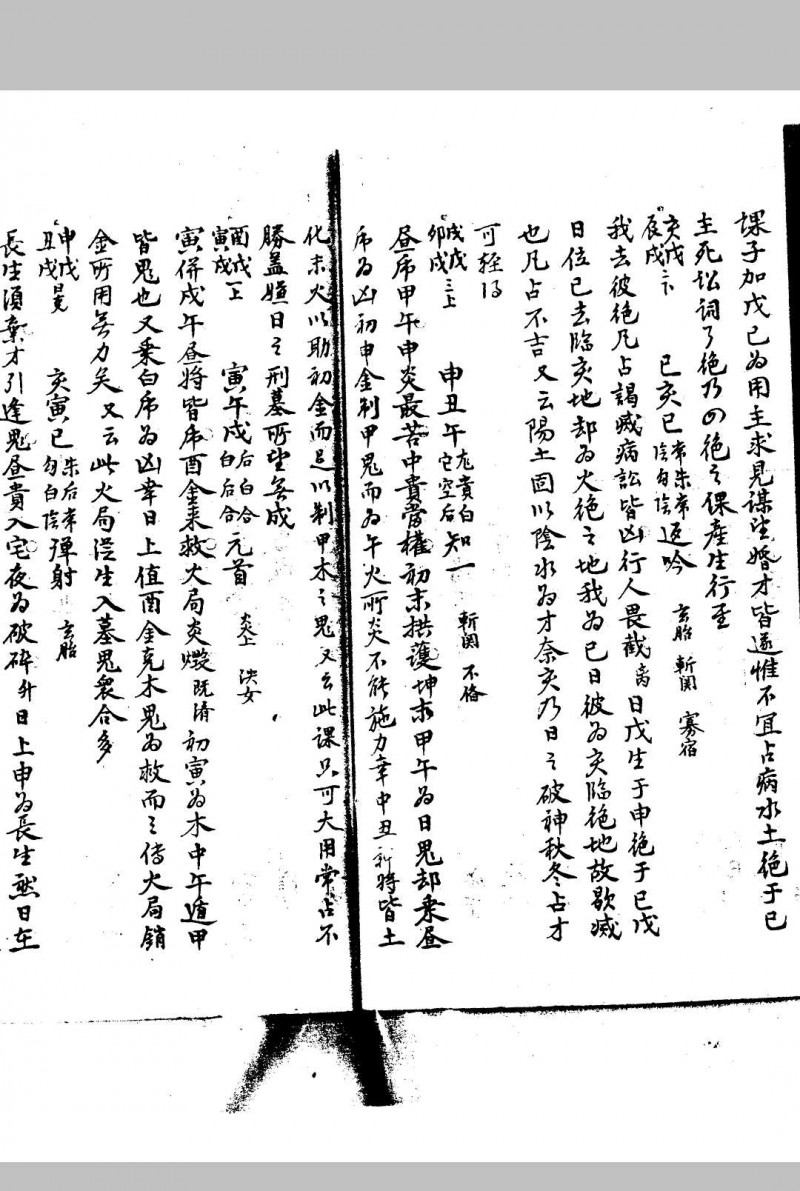 堁子加戊已為用主求見謀望婚才皆遂惟不宜占病水土絶于巳
主死訟詞了絶乃四絶之保產生行至
亥戌 辰戌 卞 巳亥巳 常朱常 陰勾陰 返吟 玄胎 斬関 寡宿
我去彼絶凡占謁滅病訟皆凶行人畏截离日戊生于申絶于巳戊
日位已去臨亥地却為火絶之地我為巳日彼為亥臨絶地故歇滅
也凡占不吉又云陽土固以陰水為才奈亥乃日之破神秋冬占才
可輕得
戌戌 卯戌 三上 申丑午 尤貴白 它空后 知一 斬関 不俻
昼乕甲午申炎最苦中貴當權初末拱護坤求甲午為日鬼却乘昼
乕為凶初申金制甲鬼而為午火所炎不能施力幸中丑 將皆土
化末火以助初金而足以制甲木之鬼又云此課只可大用常占不
勝盖嫌日之刑墓所望無成
酉戌 寅戌 上 寅午戌 后白合 白后合 元首 炎上 泆女
寅併戌午昼將皆乕酉金来救火局炎燬既清初寅為木中午遁甲
皆鬼也又乗白乕為凶幸日上值酉金克木鬼為救而三傳火局銷
金所用無力矣又云此火局從生入墓鬼衆合多
申戌 丑戌 昆 亥寅巳 朱后常 勾白陰 彈射 玄胎
長生須棄才引逢鬼昼貴入宅夜為破碎升日上申為長生然日在